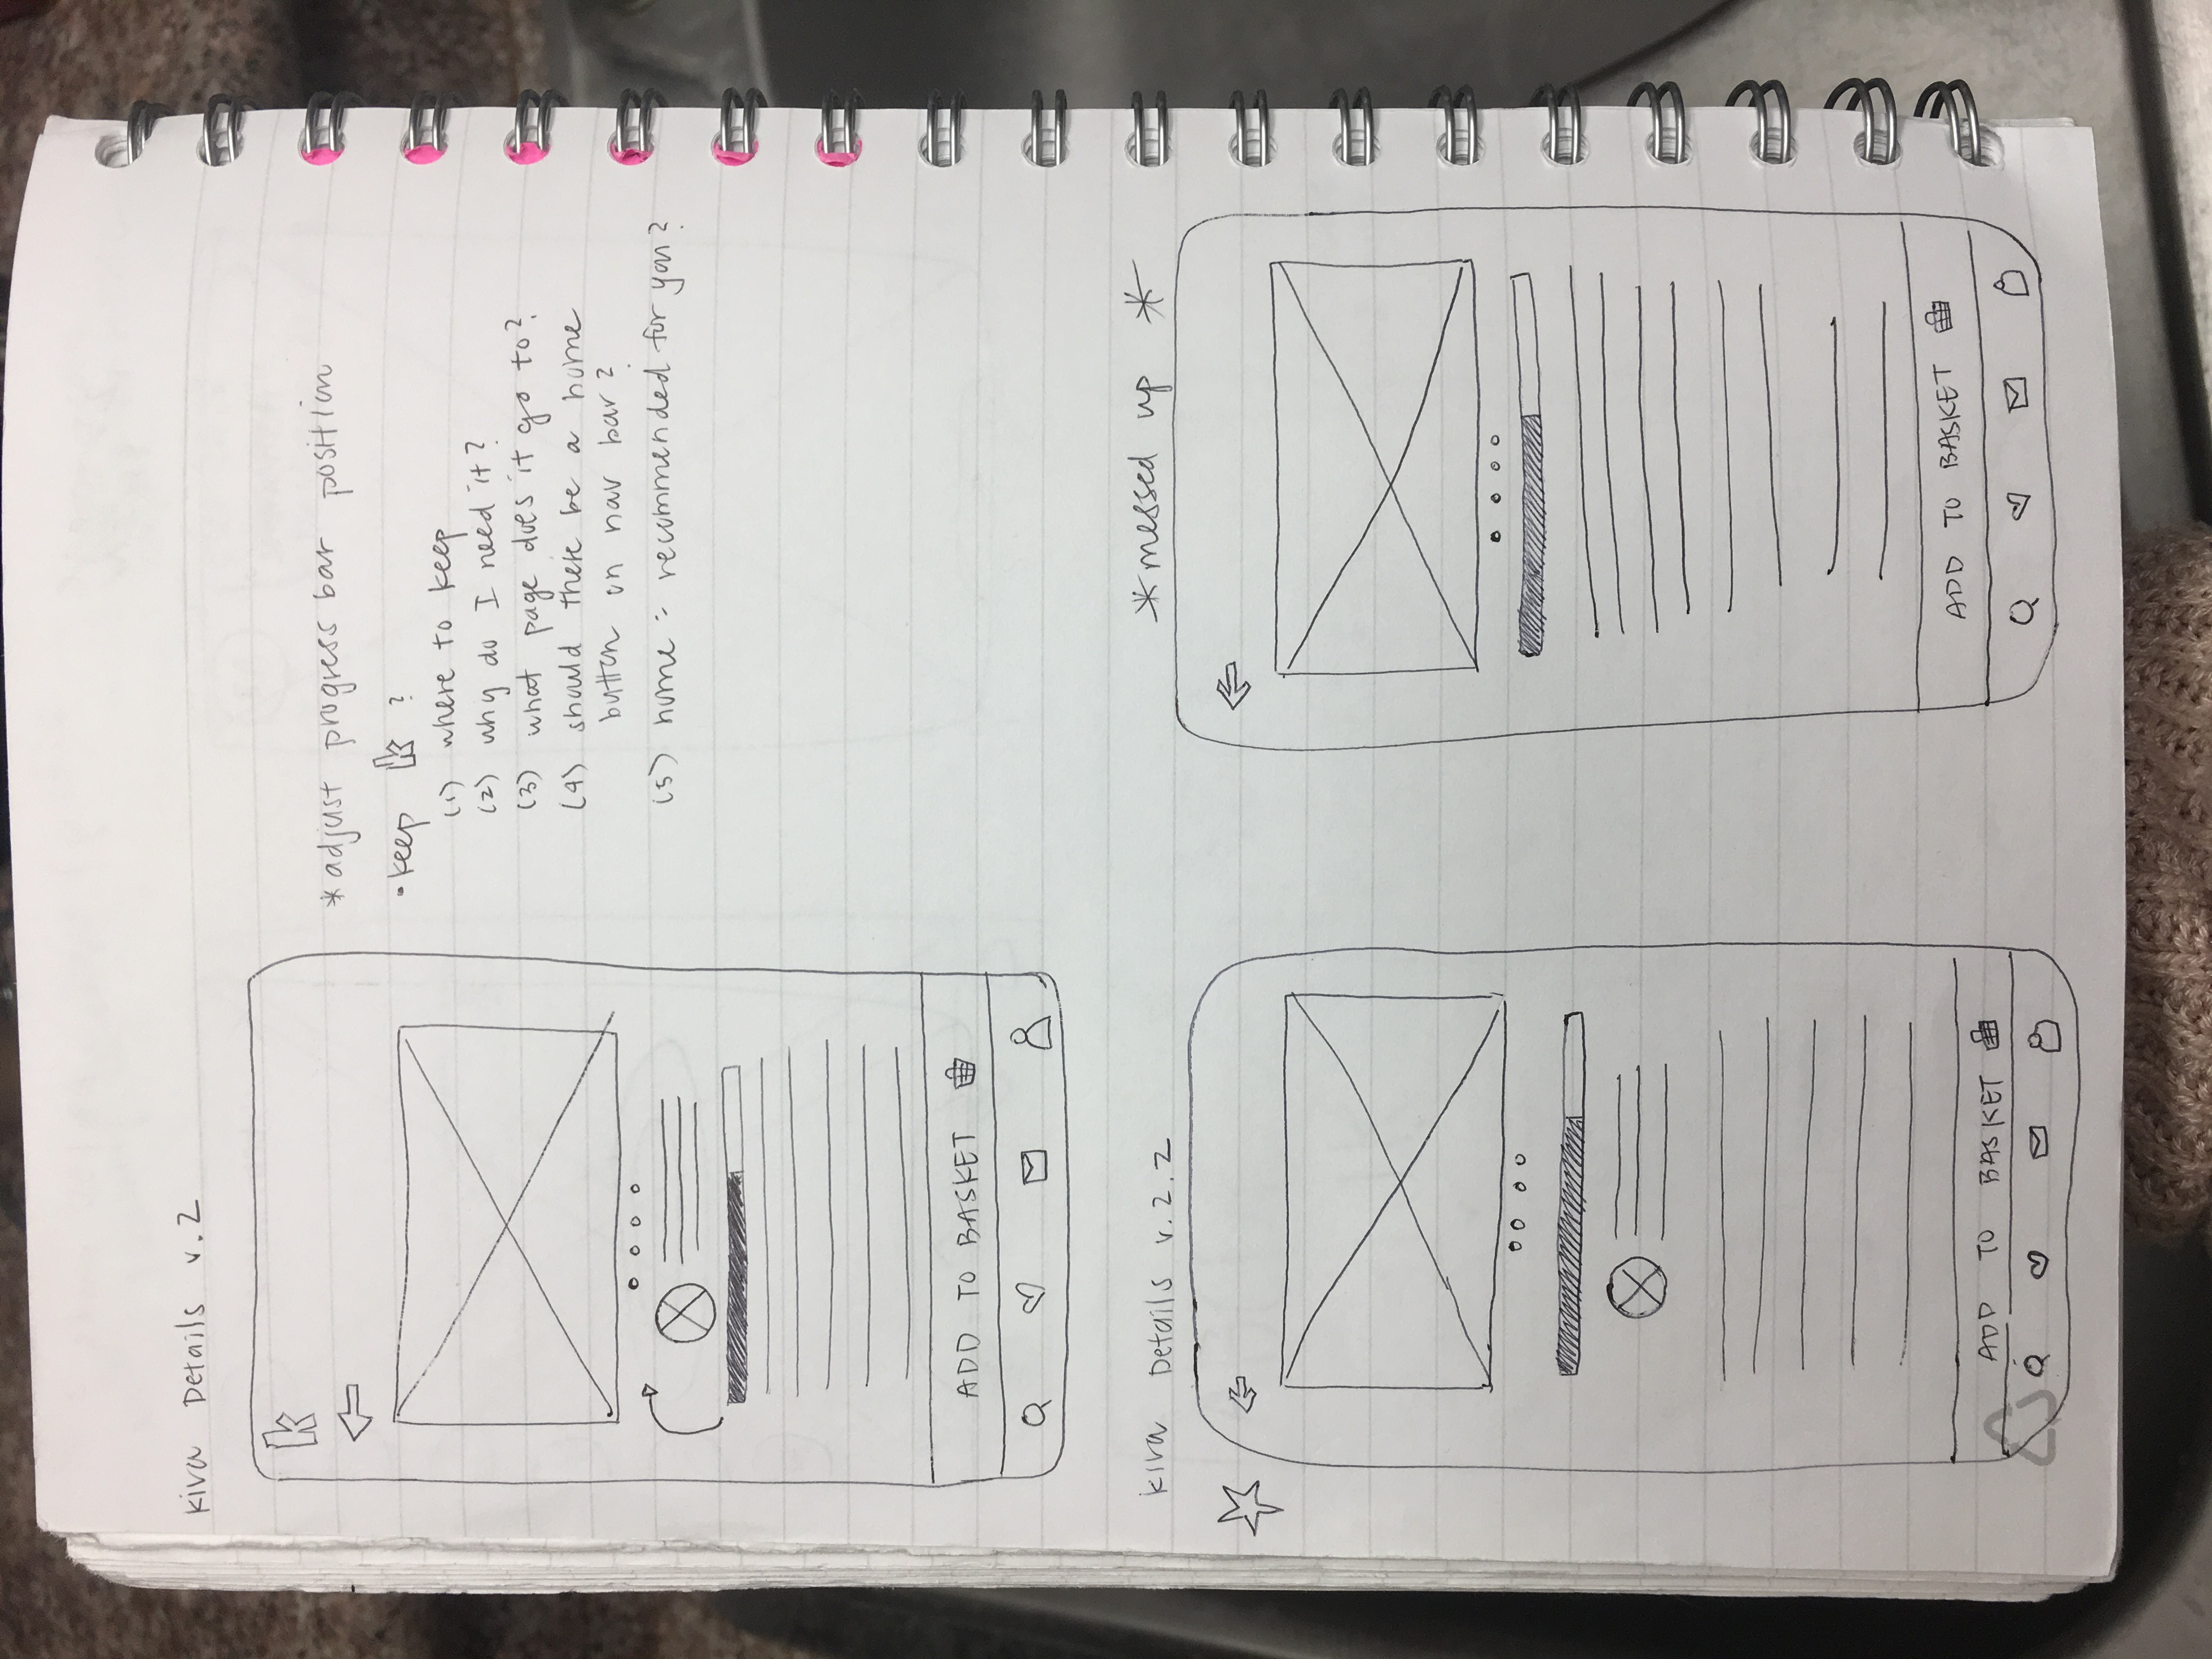 Kiva Details v.2
k
*adjust progress bar position
• keep k ?
(1) where to keep
(2) why do I need it?
(3) what page does it go to?
(4) should there be a home
button on nav bar?
(5) home = recommended for you?
ADD TO BASKET
Kiva Details v.2.2
*messed up *
ADD TO BASKET
ADD TO BASKET